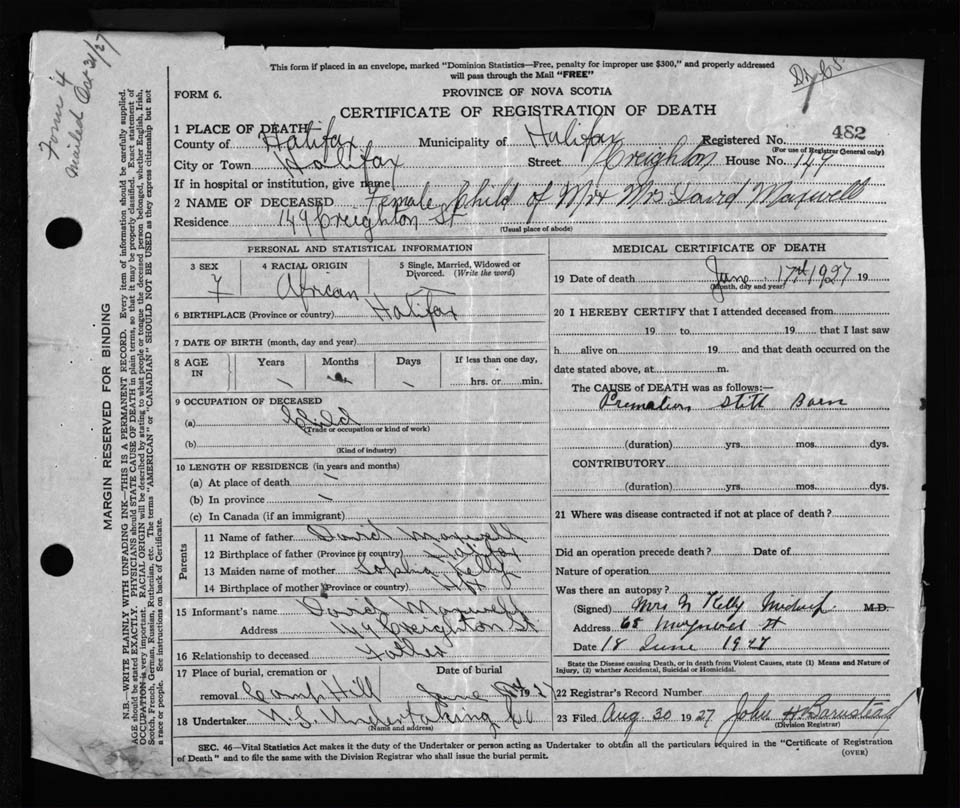 Form 4
mailed Oct 31/27
This form if placed in an envelope, marked "Dominion Statistics—Free, penalty for improper use $300," and properly addressed
will pass through the Mail "FREE"
FORM 6.
PROVINCE OF NOVA SCOTIA
CERTIFICATE OF REGISTRATION OF DEATH
1 PLACE OF DEATH
County of Halifax Municipality of Halifax Registered No. 482
(For use of Registrar General only)
City or Town Halifax Street Creighton House No. 149
If in hospital or institution, give name
2 NAME OF DECEASED Female Child of Mr & Mrs David Maxwell
Residence 149 Creighton St
(Usual place of abode)
PERSONAL AND STATISTICAL INFORMATION
3 SEX 4 RACIAL ORIGIN 5 Single, Married, Widowed or
Divorced. (Write the word)
F African
6 BIRTHPLACE (Province or country) Halifax
7 DATE OF BIRTH (month, day and year)
8 AGE IN Years Months Days If less than one day,
hrs. or min.
9 OCCUPATION OF DECEASED
(a) Child
(Trade or occupation or kind of work)
(b)
(Kind of industry)
10 LENGTH OF RESIDENCE (in years and months)
(a) At place of death
(b) In province
(c) In Canada (if an immigrant)
Parents
11 Name of father David Maxwell
12 Birthplace of father (Province or country) Halifax
13 Maiden name of mother Sophia Kelly
14 Birthplace of mother (Province or country)
15 Informant's name David Maxwell
Address 149 Creighton St
16 Relationship to deceased Father
17 Place of burial, cremation or Date of burial
removal Camp Hill June 1927
18 Undertaker N.S. Undertaking Co
(Name and address)
MEDICAL CERTIFICATE OF DEATH
19 Date of death June 17th 1927 19
(Month, day and year)
20 I HEREBY CERTIFY that I attended deceased from
19 to 19 that I last saw
h alive on 19 and that death occurred on the
date stated above, at m.
The CAUSE of DEATH was as follows:—
Premature Still Born
(duration) yrs. mos. dys.
CONTRIBUTORY
(duration) yrs. mos. dys.
21 Where was disease contracted if not at place of death?
Did an operation precede death? Date of
Nature of operation
Was there an autopsy?
(Signed) Mrs N Kelly Midwife M.D.
Address 68 Maynard St
Date 18 June 1927
State the Disease causing Death, or in death from Violent Causes, state (1) Means and Nature of
Injury, (2) whether Accidental, Suicidal or Homicidal.
22 Registrar's Record Number
23 Filed Aug 30 1927 John H Barnstead
(Division Registrar)
SEC. 46—Vital Statistics Act makes it the duty of the Undertaker or person acting as Undertaker to obtain all the particulars required in the "Certificate of Registration
of Death" and to file the same with the Division Registrar who shall issue the burial permit.
(OVER)
MARGIN RESERVED FOR BINDING
N.B.—WRITE PLAINLY WITH UNFADING INK—THIS IS A PERMANENT RECORD. Every item of information should be carefully supplied.
AGE should be stated EXACTLY. PHYSICIANS should STATE CAUSE OF DEATH in plain terms, so that it may be properly classified. Exact statement of
OCCUPATION is very important. RACIAL ORIGIN will be described by stating to what people or tongue the deceased person belonged, whether English, Irish,
Scotch, French, German, Russian, Ruthenian, etc. The terms "AMERICAN" or "CANADIAN" SHOULD NOT BE USED as they express citizenship but not
a race or people. See instructions on back of Certificate.